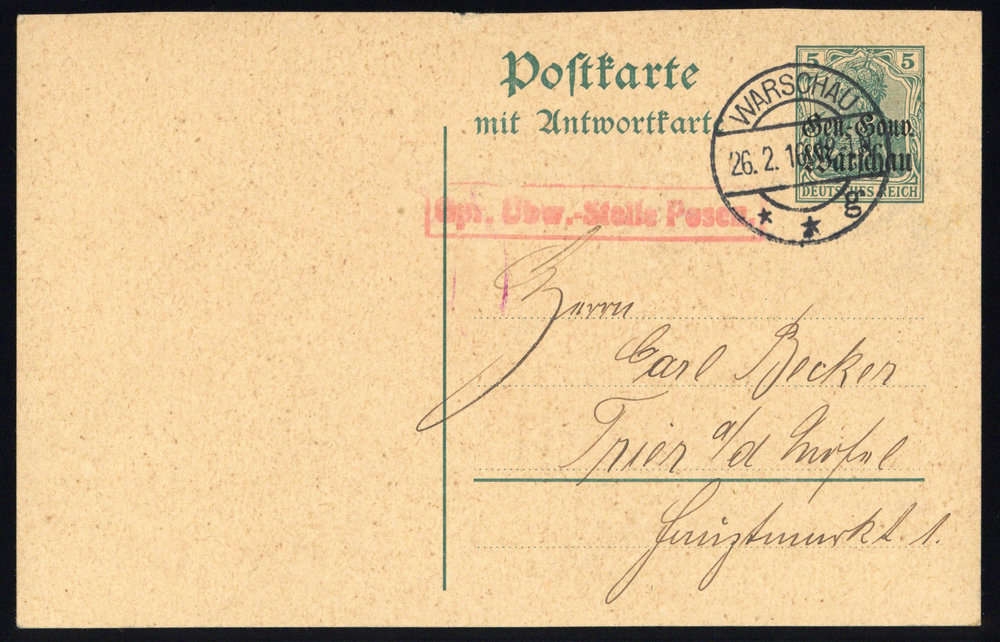 Postkarte
mit Antwortkarte
5 5
Gen.-Gouv.
Warschau
DEUTSCHES REICH
WARSCHAU
26. 2. 16
* * g
Gpr. Überw.-Stelle Posen.
Herrn
Carl Becker
Trier a/d Mosel
Hauptmarkt 1.